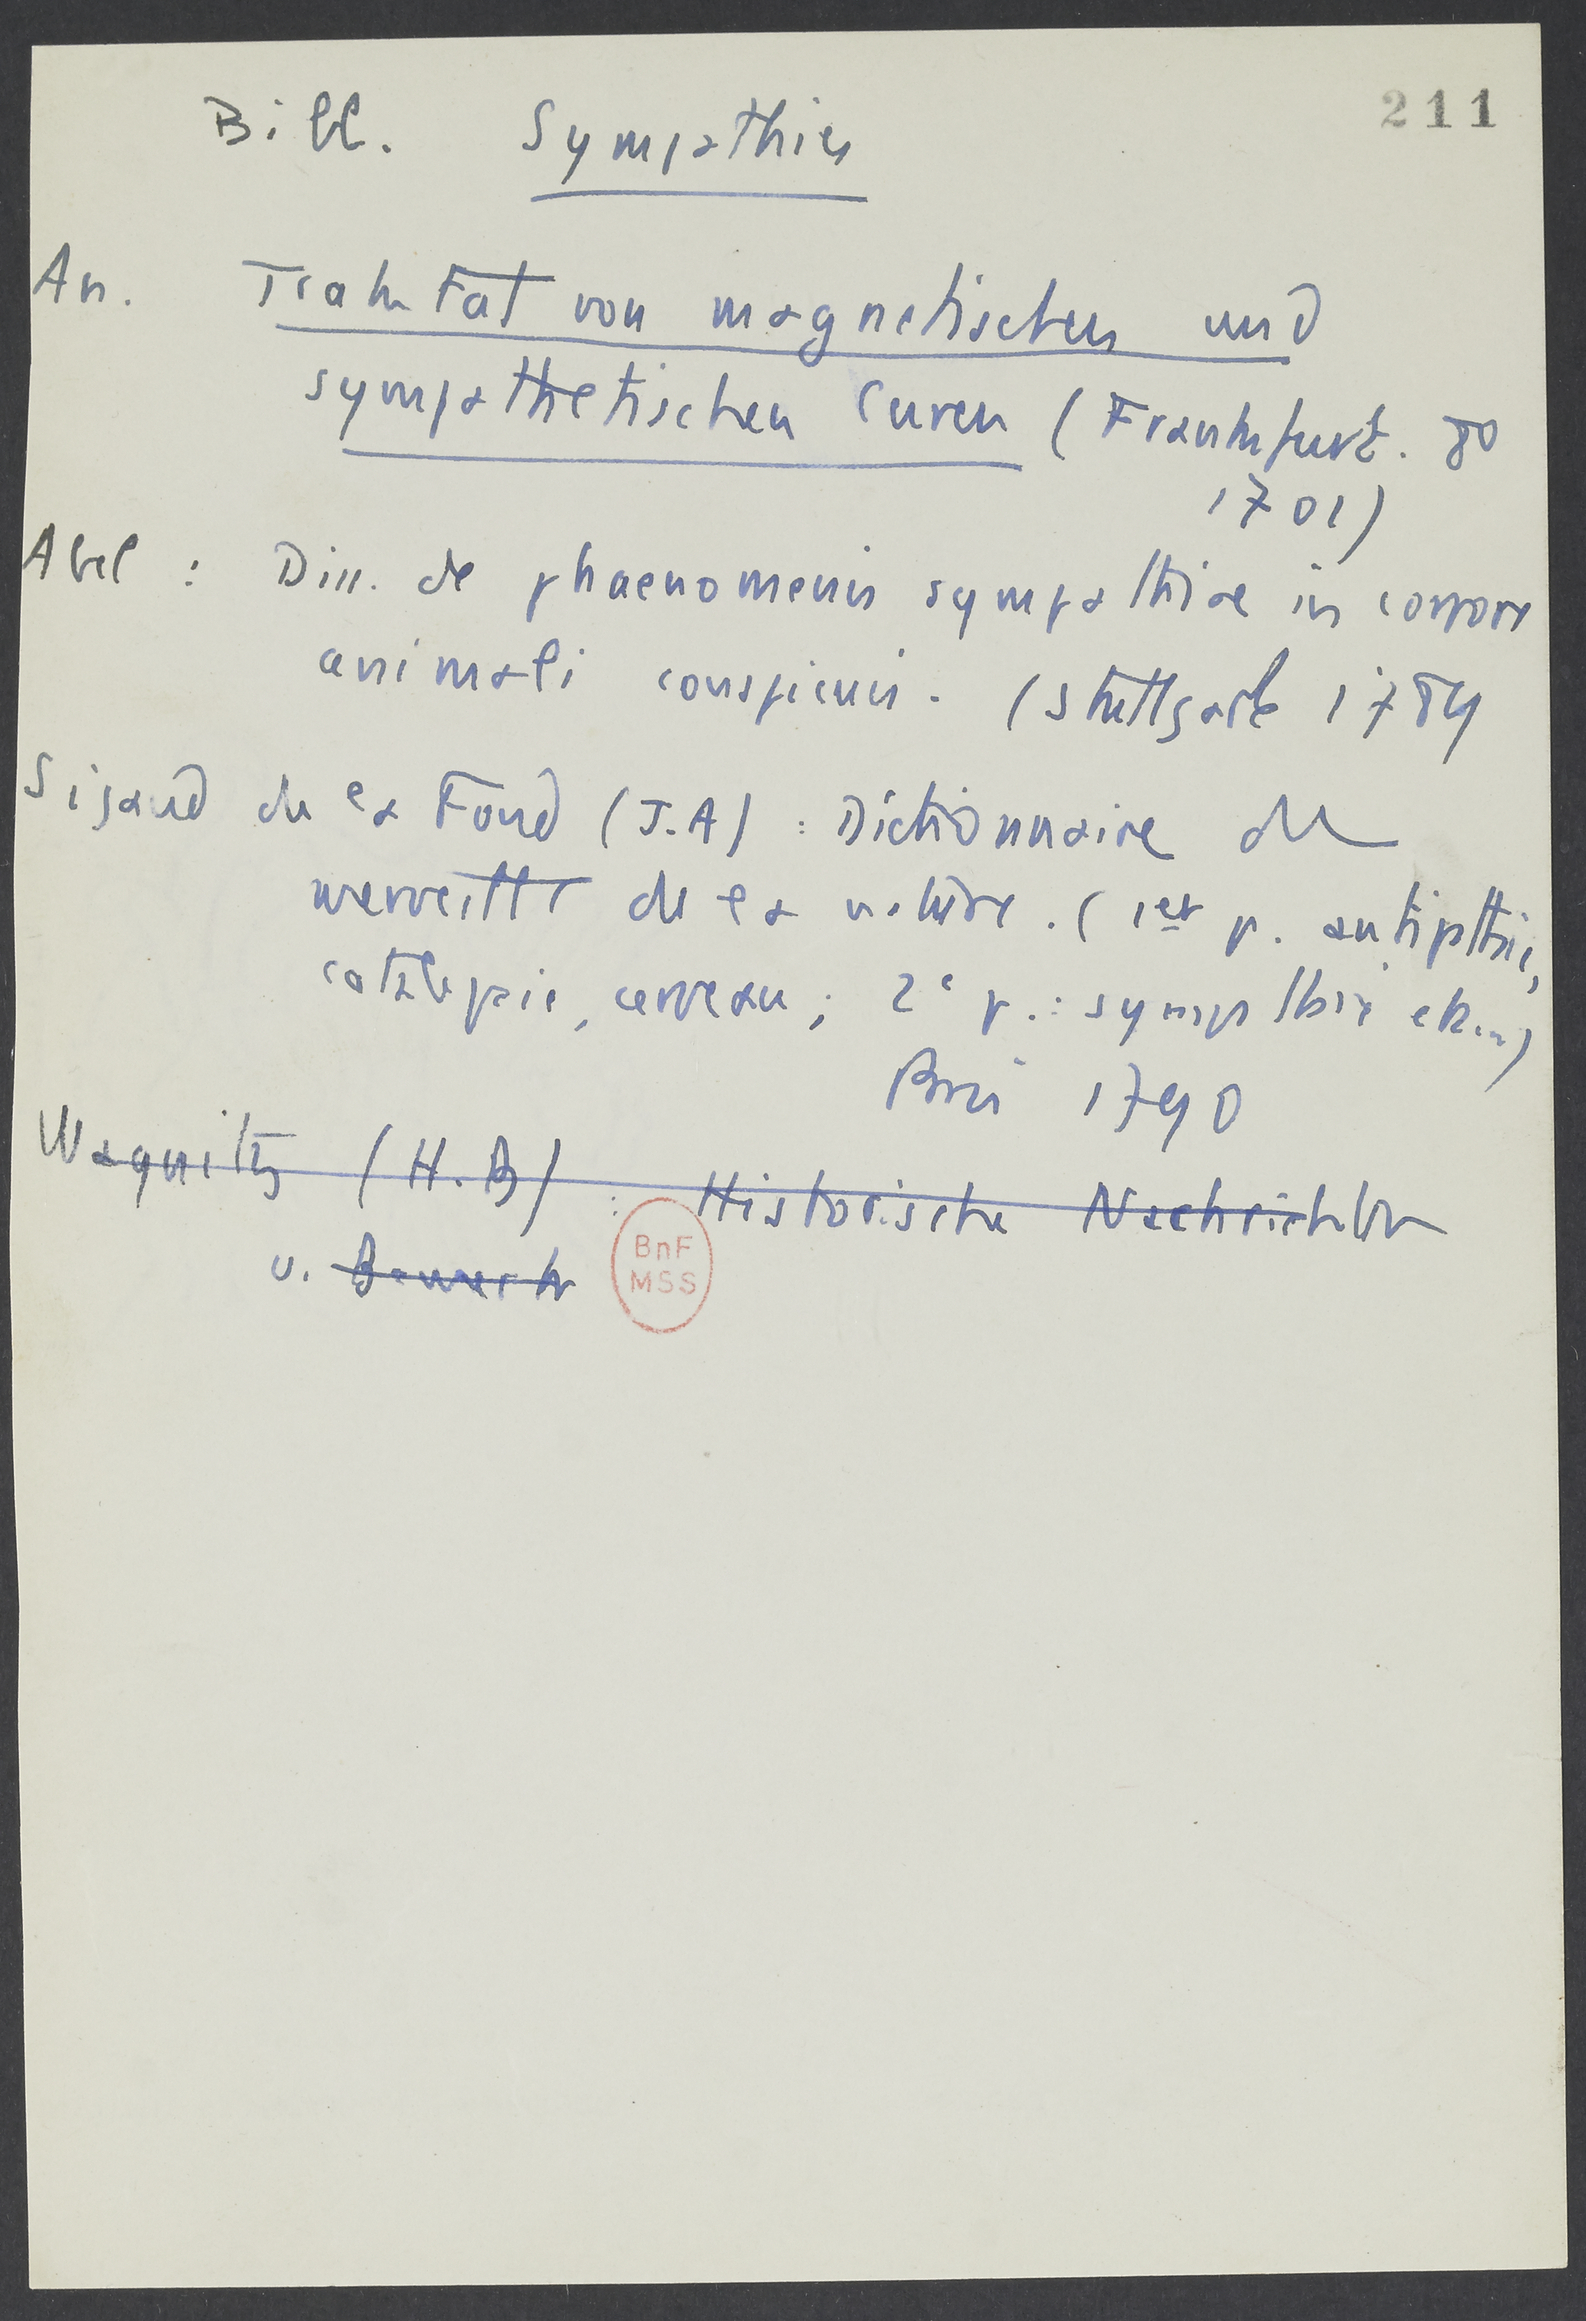 211
Bibl. Sympathies
An. Traktat von magnetischen und
sympathetischen Curen (Frankfurt. 8o
1701)
Abel : Diss. de phaenomenis sympathiae in corpore
animali conspicuis. (Stuttgart 178
Sigaud de la Fond (J.A) : Dictionnaire des
merveilles de la nature. (1er p. antipathie,
catalepsie, cerveau ; 2e p. : sympathie etc...)
Paris 1790
Wagnitz (H.B) : Historische Nachrichten
u. Bemerk
BnF
MSS